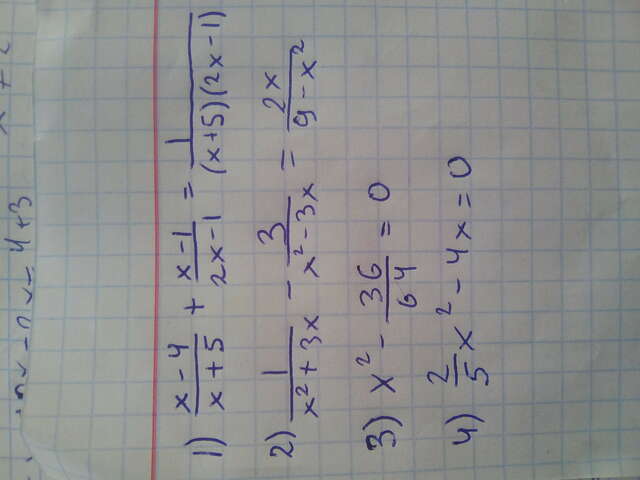 1) (x-4)/(x+5) + (x-1)/(2x-1) = 1/((x+5)(2x-1))
2) 1/(x²+3x) - 3/(x²-3x) = 2x/(9-x²)
3) x² - 36/64 = 0
4) 2/5 x² - 4x = 0